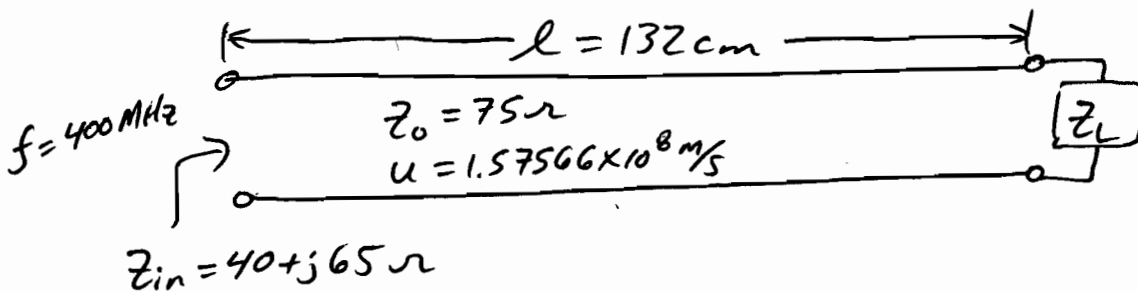 l = 132cm
f = 400 MHz
Z₀ = 75 Ω
u = 1.57566×10⁸ m/s
Z_L
Z_in = 40 + j65 Ω